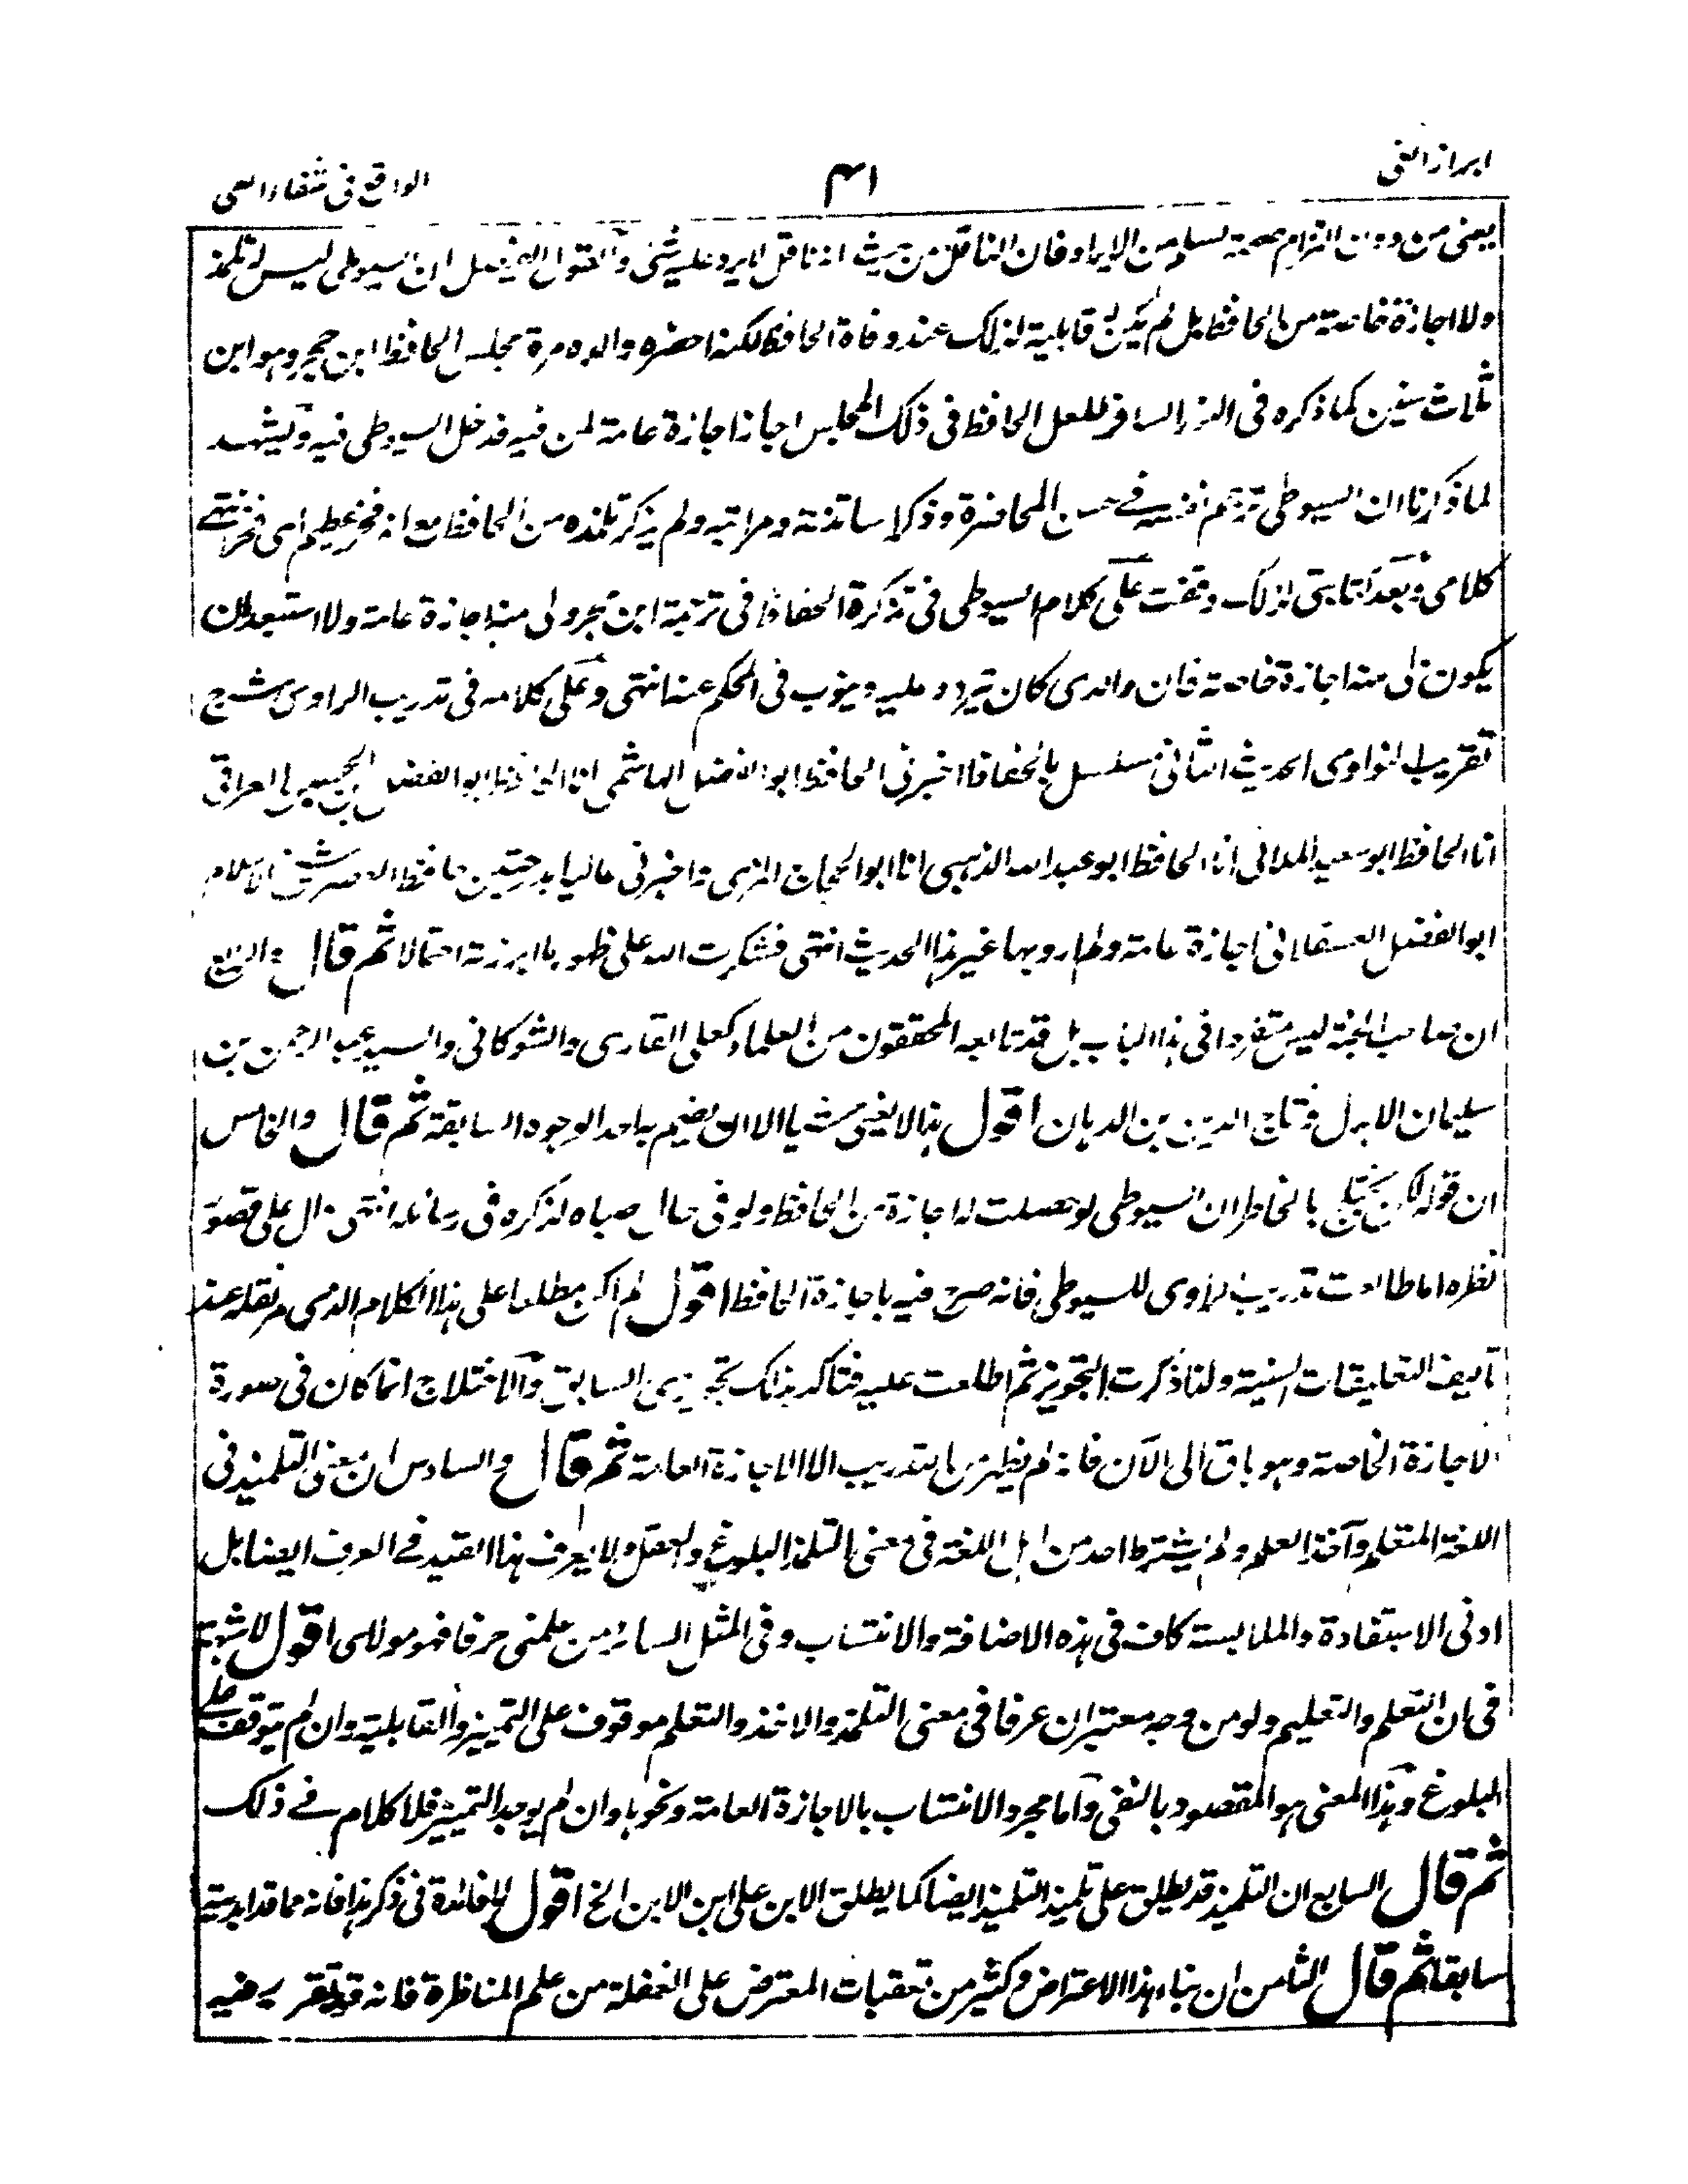 ابراز الغی
۴۱
الواقع فی شفاء العی
یعنی من دون التزام صحته لسلم من الایراد فان الناقل من حیث انه ناقل لا یرد علیه شئ والقول الفیصل ان السیوطی لیس له تلمذ
ولا اجازة خاصة من الحافظ بل لم یکن له قابلیة لذلک عند وفاة الحافظ لکنه احضره والده مرة مجلس الحافظ ابن حجر وهو ابن
ثلاث سنین کما ذکره فی النور السافر فلعل الحافظ فی ذلک المجلس اجاز اجازة عامة لمن فیه فدخل السیوطی فیه ویشهد
لما ذکرنا ان السیوطی ترجم نفسه فے حسن المحاضرة وذکر اساتذته ومراتبه ولم یذکر تلمذه من الحافظ مع انه فخر عظیم ای فخر انتهے
کلامی وبعد کتابتی لذلک وقفت علی کلام السیوطی فی تذکرة الحفاظ فی ترجمة ابن حجر ولی منه اجازة عامة ولا استبعد ان
یکون لی منه اجازة خاصة فان والدی کان یتردد علیه وینوب فی الحکم عنه انتهی وعلی کلامه فی تدریب الراوی شرح
تقریب النواوی الحدیث الثانی مسلسل بالحفاظ اخبرنی الحافظ ابو الفضل الهاشمی انا الحافظ ابو الفضل بن الحسین العراقی
انا الحافظ ابو سعید العلائی انا الحافظ ابو عبد الله الذهبی انا ابو الحجاج المزی واخبرنی عالیا بدرجتین حافظ العصر شیخ الاسلام
ابو الفضل العسقلانی اجازة عامة ولم ارو بها غیر هذا الحدیث انتهی فشکرت الله علی ظهور ما ابرزته احتمالا ثم قال والرابع
ان صاحب الجنة لیس متفردا فی هذا الباب بل قد تابعه المحققون من العلماء کعلی القاری والشوکانی والسید عبد الرحمن بن
سلیمان الاهدل وتاج الدین بن الدهان اقول هذا لا یغنی شیئا الا ان یضم باحد الوجوه السابقة ثم قال والخامس
ان قوله لکن یختلج بالخاطر ان السیوطی لو حصلت له اجازة من الحافظ ولو فی حال صباه لذکره فی رسائله انتهی دال علی قصور
نظره اما طالعت تدریب الراوی للسیوطی فانه صرح فیه باجازة الحافظ اقول لم اکن مطلعا علی هذا الکلام الذی مر نقله عند
تالیف التعلیقات السنیة ولذا ذکرت بالتجویز ثم اطلعت علیه فتاکد بذلک تجویزی السابق والاختلاج انما کان فی صورة
الاجازة الخاصة وهو باق الی الآن فانه لم یظهر من التدریب الا الاجازة العامة ثم قال والسادس ان معنی التلمیذ فی
اللغة المتعلم وآخذ العلم ولم یشترط احد من اهل اللغة فی معنی التلمذ البلوغ والعقل ولا یعرف هذا القید فے العرف ایضا بل
ادنی الاستفادة والملابسة کاف فی هذه الاضافة والانتساب وفی المثل السائر من علمنی حرفا فهو مولای اقول لا شبهة
فی ان التعلم والتعلیم ولو من وجه معتبران عرفا فی معنی التلمذ والاخذ والتعلم موقوف علی التمییز والقابلیة وان لم یتوقف علی
البلوغ وهذا المعنی هو المقصود بالنفی واما مجرد الانتساب بالاجازة العامة ونحوها وان لم یوجد التمییز فلا کلام فے ذلک
ثم قال السابع ان التلمیذ قد یطلق علی تلمیذ التلمیذ ایضا کما یطلق الابن علی ابن الابن الخ اقول لا فائدة فی ذکر هذا فانه مما قد ابدیته
سابقا ثم قال الثامن ان بناء هذا الاعتراض وکثیر من تعقبات المعترض علی الغفلة من علم المناظرة فانه قد تقرر فیه